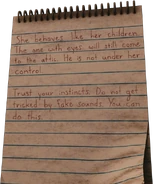 She behaves like her children.
The one with eyes will still come
to the attic. He is not under her
control.
Trust your instincts. Do not get
tricked by fake sounds. You can
do this.